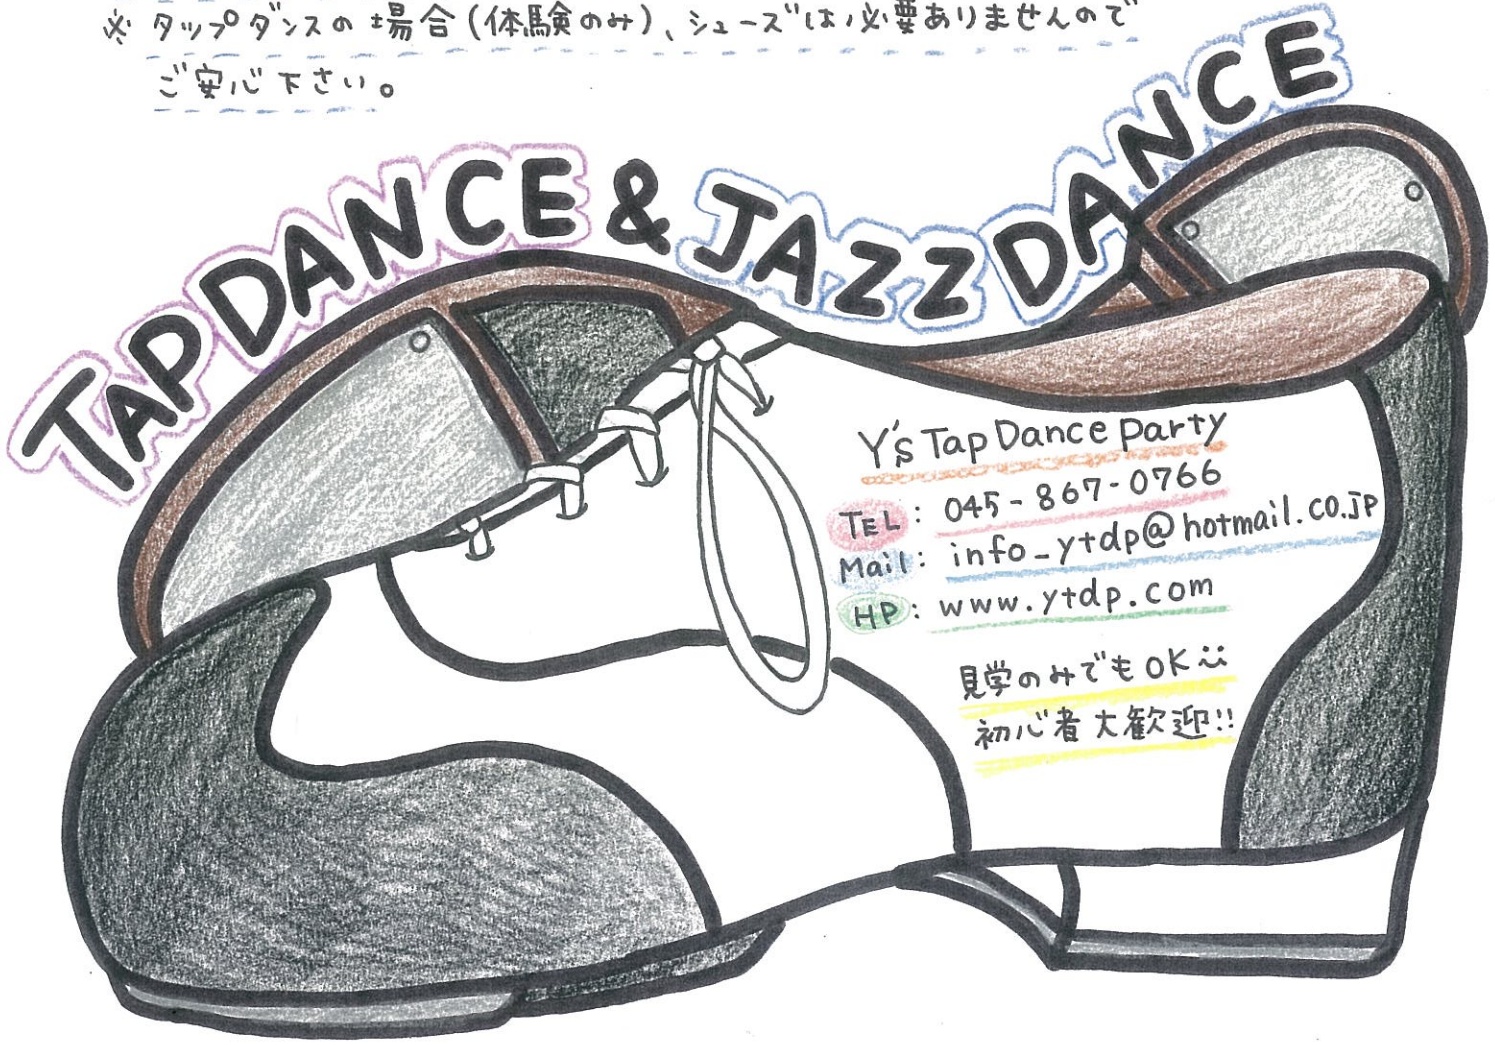 ※ タップダンスの場合(体験のみ)、シューズは必要ありませんので
ご安心下さい。
TAP DANCE & JAZZ DANCE
Y's Tap Dance Party
TEL: 045-867-0766
Mail: info_ytdp@hotmail.co.jp
HP: www.ytdp.com
見学のみでもOK
初心者大歓迎!!